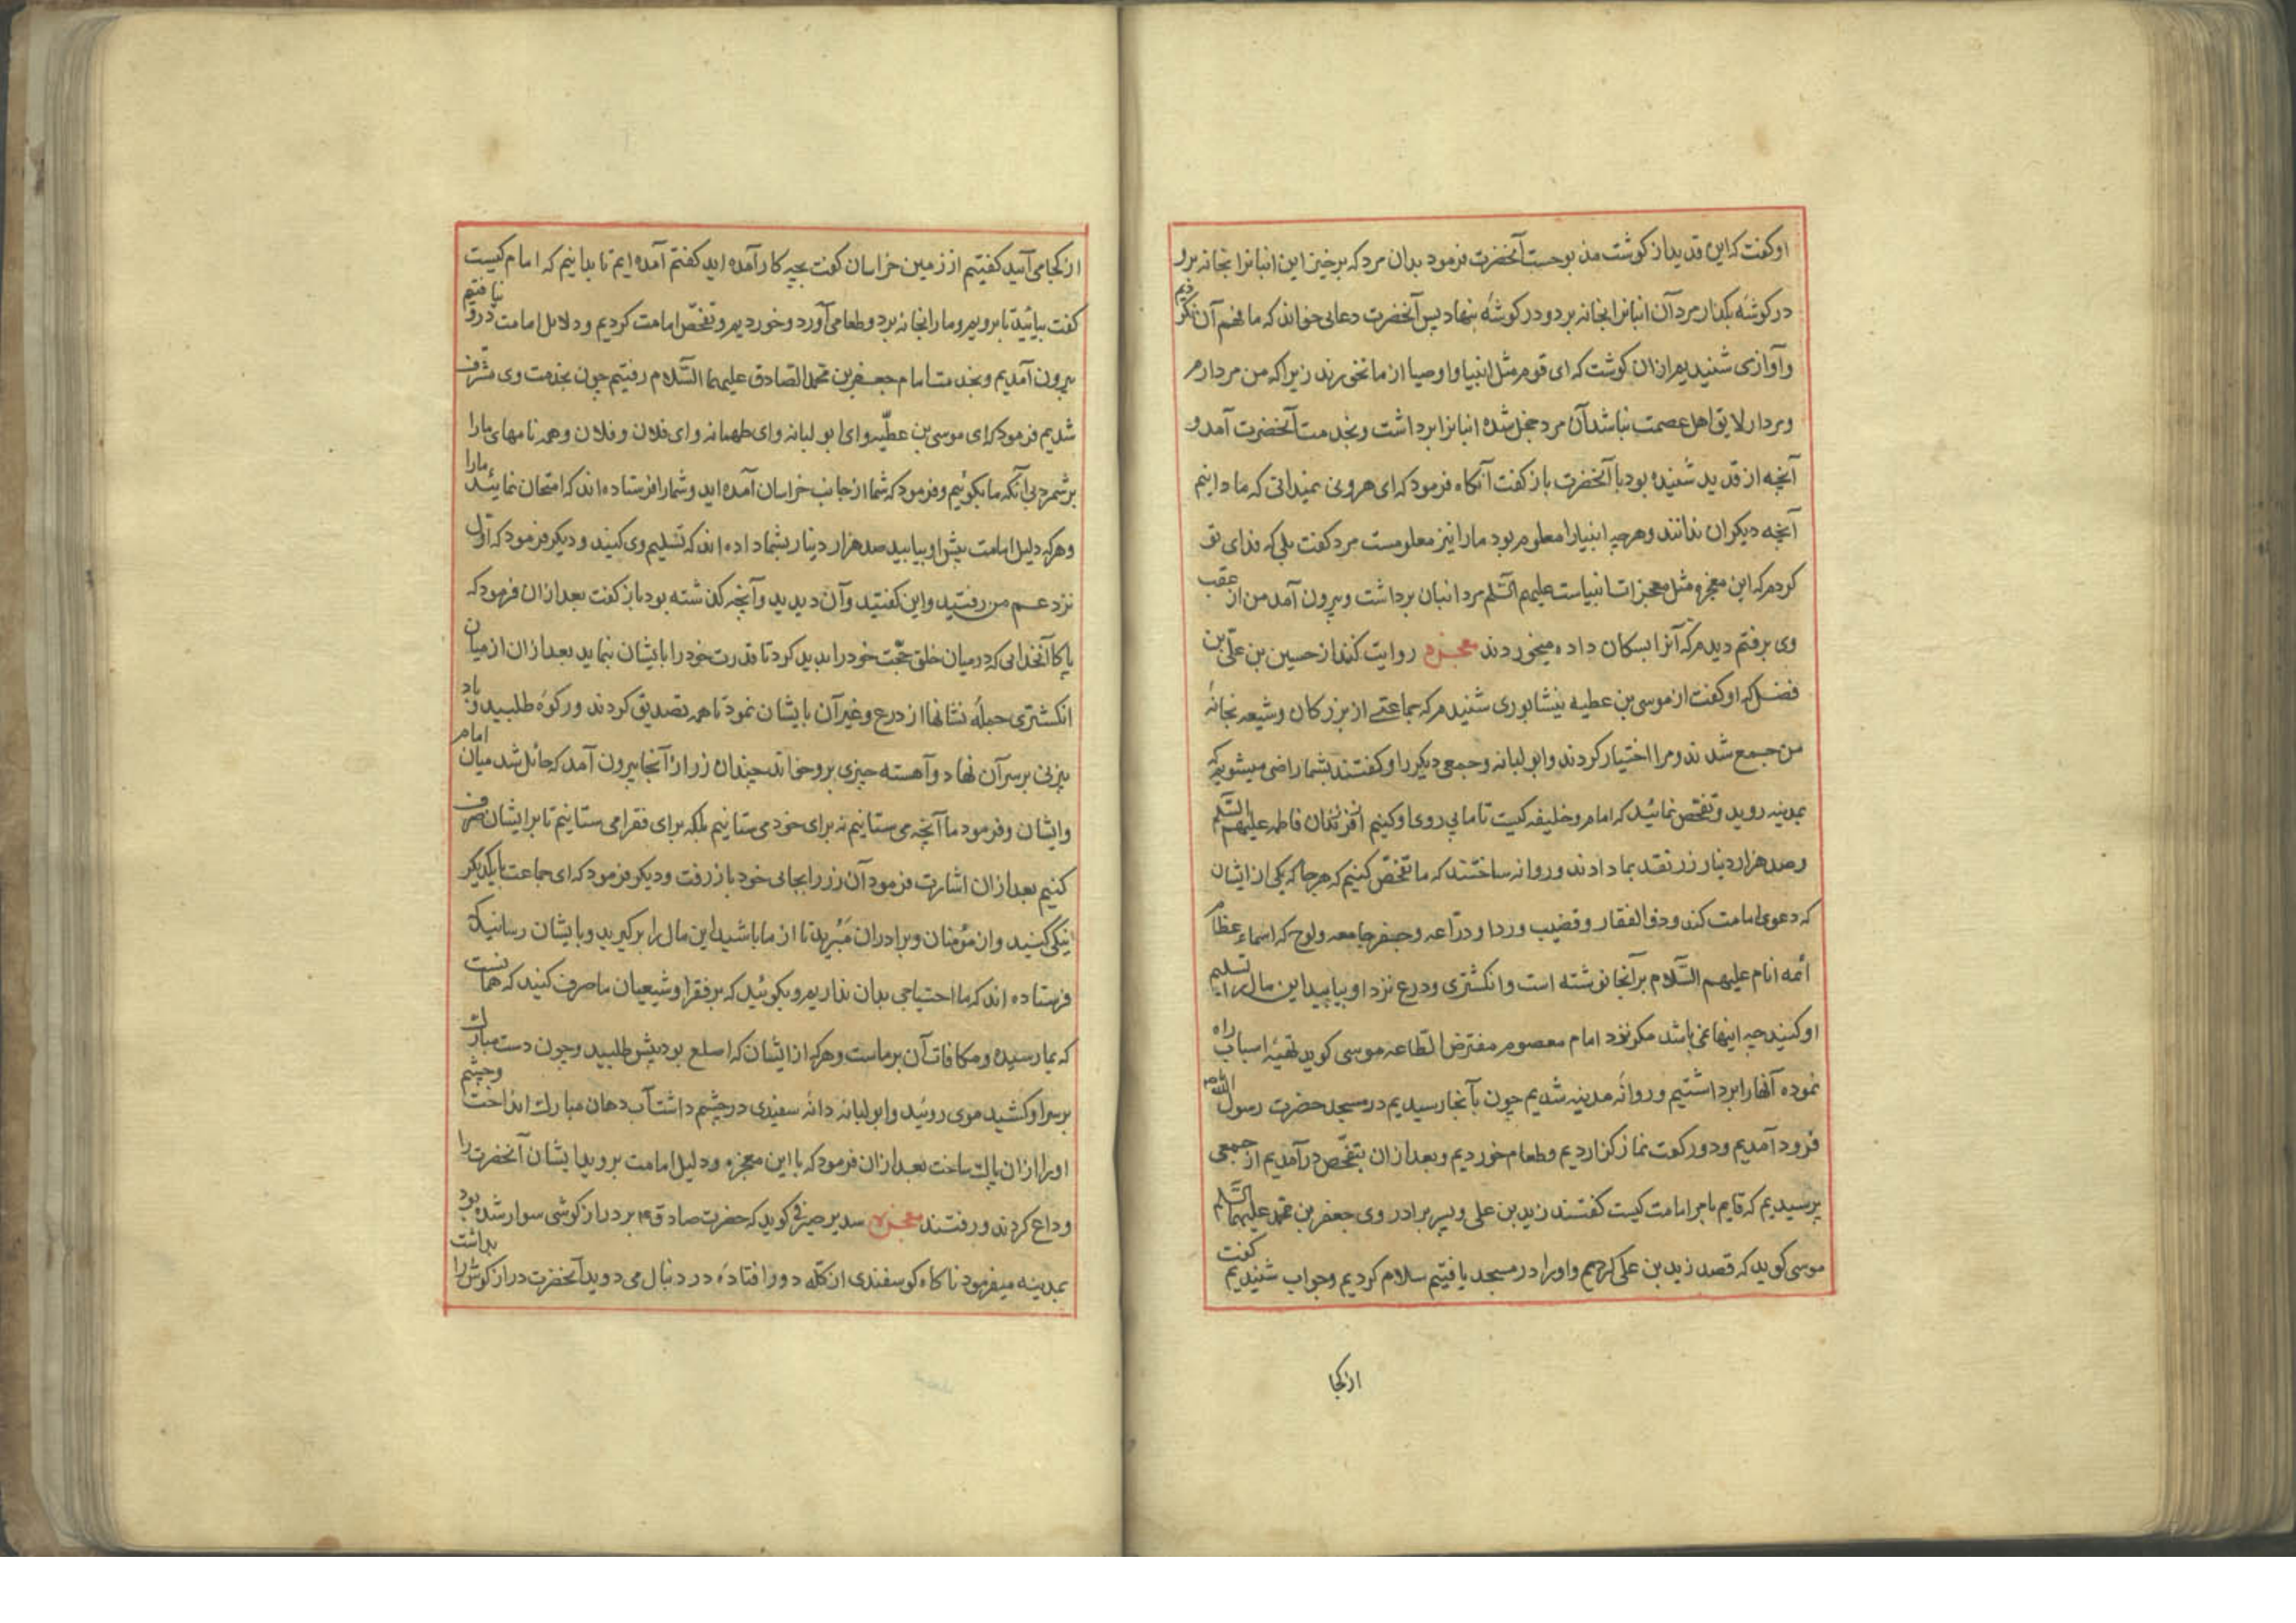 او کفت که این قدید از کوشت مذبوحست آنحضرت فرمود بدان مرد که برخیز این انبانرا بخانه برو
در کوشهٔ بکذار مرد آن انبانرا بخانه برد و در کوشهٔ بنهاد پس آنحضرت دعائی خواند که ما فهم آن نکردیم
و آوازی شنیدیم ازان کوشت که ای قوم مثل انبیا و اوصیا از ما نخورند زیرا که من مردارم
و مردار لایق اهل عصمت نباشد آن مرد خجل شده انبانرا برداشت و بخدمت آنحضرت آمد و
آنچه از قدید شنیده بود با آنحضرت باز کفت آنکاه فرمود که ای هرونی نمیدانی که ما دانیم
آنچه دیکران ندانند و هرچه انبیارا معلوم بود مارا نیز معلومست مرد کفت بلی که فدای تو
کردم که این معجزه مثل معجزات انبیاست علیهم السّلم مرد انبان برداشت و بیرون آمد من از عقب
وی برفتم دیدم که آنرا بسکان داده میخوردند معجزه روایت کند از حسین بن علی بن
فضل که او کفت از موسی بن عطیه نیشابوری شنیدم که جماعتی از بزرکان و شیعه بخانهٔ
من جمع شدند و مرا اختیار کردند و ابو لبانه و جمعی دیکر را و کفتند بشما راضی میشویم که
بمدینه روید و تفحص نمائید که امام و خلیفه کیست تا ما پی روی او کنیم از فرزندان فاطمه علیهم السّلم
و صد هزار دینار زر نقد بما دادند و روانه ساختند که ما تفحّص کنیم که هرجا که یکی از ایشان
که دعوی امامت کند و ذو الفقار و قضیب و ردا و درّاعه و جفر جامعه و لوح که اسماء عظام
ائمه انام علیهم السّلام بر آنجا نوشته است و انکشتری و درع نزد او بیابید این مال را تسلیم
او کنید چه اینها نمی باشد مکر نزد امام معصوم مفترض الطّاعه موسی کوید تهیّهٔ اسباب راه
نموده آنهارا برداشتیم و روانهٔ مدینه شدیم چون بآنجا رسیدیم در مسجد حضرت رسول الله
فرود آمدیم و دو رکعت نماز کزاردیم و طعام خوردیم و بعد ازان بتفحّص درآمدیم از جمعی
پرسیدیم که قایم بامر امامت کیست کفتند زید بن علی و پسر برادر وی جعفر بن محمّد علیهما السّلم
موسی کوید که قصد زید بن علی کردیم و اورا در مسجد یافتیم سلام کردیم و جواب شنیدیم کفت
از کجا
از کجا می آیید کفتیم از زمین خراسان کفت بچه کار آمده اید کفتم آمده ایم تا بدانیم که امام کیست
کفت بیائید تا برویم و مارا بخانه برد و طعامی آورد و خوردیم و تفحّص امامت کردیم و دلایل امامت درو نیافتیم
بیرون آمدیم و بخدمت امام جعفر بن محمد الصادق علیهما السّلام رفتیم چون بخدمت وی مشرّف
شدیم فرمود که ای موسی بن عطّیه و ای ابو لبانه و ای طهمانه و ای فلان و فلان و همه نامهای مارا
برشمرد بی آنکه ما بکوئیم و فرمود که شما از جانب خراسان آمده اید و شمارا فرستاده اند که امتحان نمائید مارا
و هرکه دلیل امامت پیش او بیابید صد هزار دینار بشما داده اند که تسلیم وی کنید و دیکر فرمود که اوّل
نزد عم من رفتید و این کفتید و آن دیدید و آنچه کذشته بود باز کفت بعد ازان فرمود که
پاکا آنخدائی که در میان خلق حجّت خود را پدید کرد تا قدرت خود را بایشان بنماید بعد ازان از میان
انکشتری جملهٔ نشانها از درع و غیر آن بایشان نمود تا همه تصدیق کردند و رکوهٔ طلبید و باد
بیزنی بر سر آن نهاد و آهسته چیزی برو خواند چندان زر از آنجا بیرون آمد که حائل شد میان امام
و ایشان و فرمود ما آنچه می ستانیم نه برای خود می ستانیم بلکه برای فقرا می ستانیم تا بر ایشان صرف
کنیم بعد ازان اشارت فرمود آن زر را بجائی خود باز رفت و دیکر فرمود که ای جماعت با یکدیکر
نیکی کنید و از مؤمنان و برادران مبرید تا از ما باشید این مال را برکیرید و بایشان رسانید که
فرستاده اند که ما احتیاجی بدان نداریم و بکوئید که بر فقرا و شیعیان ما صرف کنید که همانست
که بما رسیده و مکافات آن بر ماست و هرکه از ایشان که اصلع بود پیش طلبید و چون دست مبارک
بر سر او کشید موی روئید و ابو لبانه دانهٔ سفیدی در چشم داشت آب دهان مبارک انداخت و چشم
اورا ازان پاک ساخت بعد ازان فرمود که با این معجزه و دلیل امامت بروید ایشان آنحضرت را
وداع کردند و رفتند معجزه سدیر صیرفی کوید که حضرت صادق ع م بر درازکوشی سوار شده بود
بمدینه میفرمود ناکاه کوسفندی از کلّه دور افتاده در دنبال می دوید آنحضرت درازکوش را بداشت